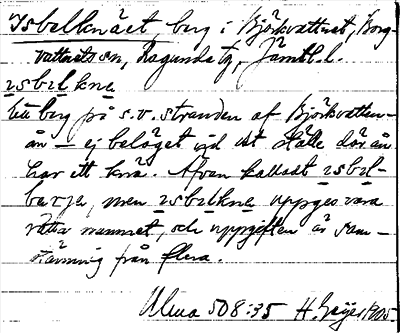 Isbelknäet, berg i Björkvattnet, Borg-
vattnets sn, Ragunda tg, Jämtl. l.
ɪsbɪlkne
Ett berg på s.v. stranden af Björkvatten-
ån – ej beläget vid det ställe där ån
har ett knä. Även kalladt ɪsbɪl-
bærje, men ɪsbɪlkne uppges vara
rätta namnet, och uppgiften är sam-
stämmig från flera.
Ulma 508:35 H. Geijer 1905.